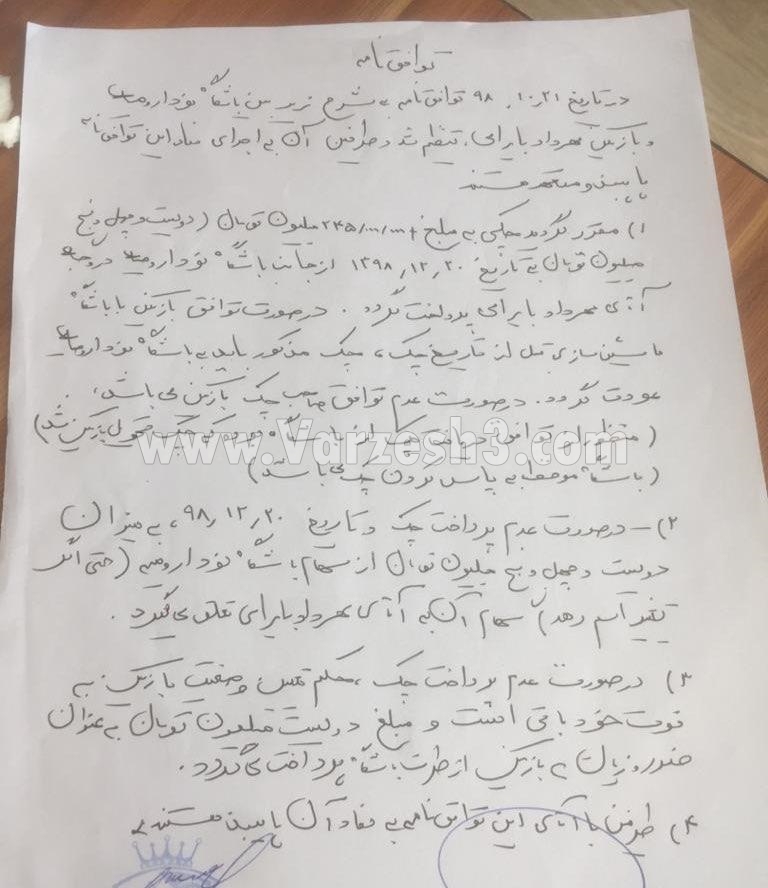 توافق نامه
در تاریخ ۹۸٫۱۰٫۲۱ توافق نامه به شرح زیر بین باشگاه نود ارومیه
و بازیکن مهرداد بایرامی، تنظیم شد و طرفین آن به اجرای مفاد این توافق نامه
پایبند و متعهد هستند
۱) مقرر گردید چکی به مبلغ ۲۴۵/۰۰۰/۰۰۰ میلیون تومان (دویست و چهل و پنج
میلیون تومان به تاریخ ۱۳۹۸٫۱۲٫۲۰ از جانب باشگاه نود ارومیه در وجه
آقای مهرداد بایرامی پرداخت گردد. درصورت توافق بازیکن با باشگاه
ماشین سازی قبل از تاریخ چک، چک مذکور باید به باشگاه نود ارومیه
عودت گردد. درصورت عدم توافق صاحب چک بازیکن می باشد.
(منظور از توافق دریافت چک از باشگاه بوده که چک تحویل بازیکن شد)
www.Varzesh3.com
(باشگاه موظف به پاس کردن چک می باشد)
۲) - درصورت عدم پرداخت چک و تاریخ ۹۸٫۱۲٫۲۰، به میزان
دویست و چهل و پنج میلیون تومان از سهام باشگاه نود ارومیه (حتی اگر
تغییر اسم دهد) سهام آن به آقای مهرداد بایرامی تعلق می گیرد.
۳) درصورت عدم پرداخت چک، حکم وضعیت بازیکن به
قوت خود باقی است و مبلغ دویست میلیون تومان به عنوان
ضرر و زیان به بازیکن از طرف باشگاه پرداخت می گردد.
۴) طرفین با امضای این توافق نامه به مفاد آن پایبند هستند